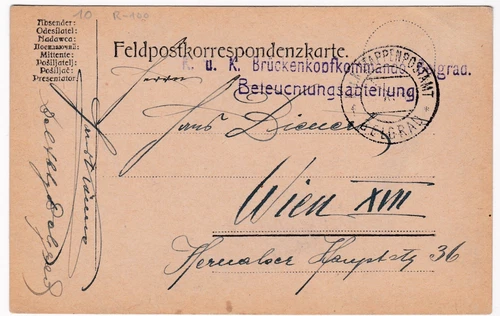 10 R-190
Absender:
Odesílatel:
Nadawca:
Mittente:
Pošiljatelj:
Pošiljač:
Presentator:
Feldpostkorrespondenzkarte.
K. u. K. Brückenkopfkommando Belgrad.
Beleuchtungsabteilung
K.u.K. ETAPPENPOSTAMT
BELGRAD
Herrn
Hans Diener
Wien XVII
Hernalser Hauptstr 36